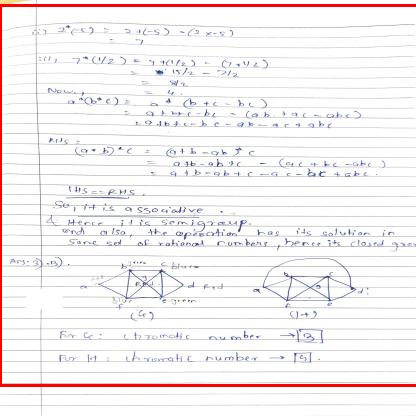 ii) 2*(-5) = 2+(-5) - (2x-5)
= 7
iii) 7*(1/2) = 7+(1/2) - (7*1/2)
= 15/2 - 7/2
= 8/2
= 4.
Now,
a*(b*c) = a * (b+c-bc)
= a+b+c-bc - (ab+ac-abc)
= a+b+c-bc-ab-ac+abc
RHS =
(a*b)*c = (a+b-ab)*c
= a+b-ab+c - (ac+bc-abc)
= a+b-ab+c-ac-bc+abc.
LHS = RHS.
So, it is associative.
& Hence it is semigroup.
and also, the operation has its solution in
same set of rational numbers, hence its closed
a b c blue d Red
blue f e green
(G)
a b c d
f e
(H)
For G: chromatic number → 3
For H: chromatic number → 4.